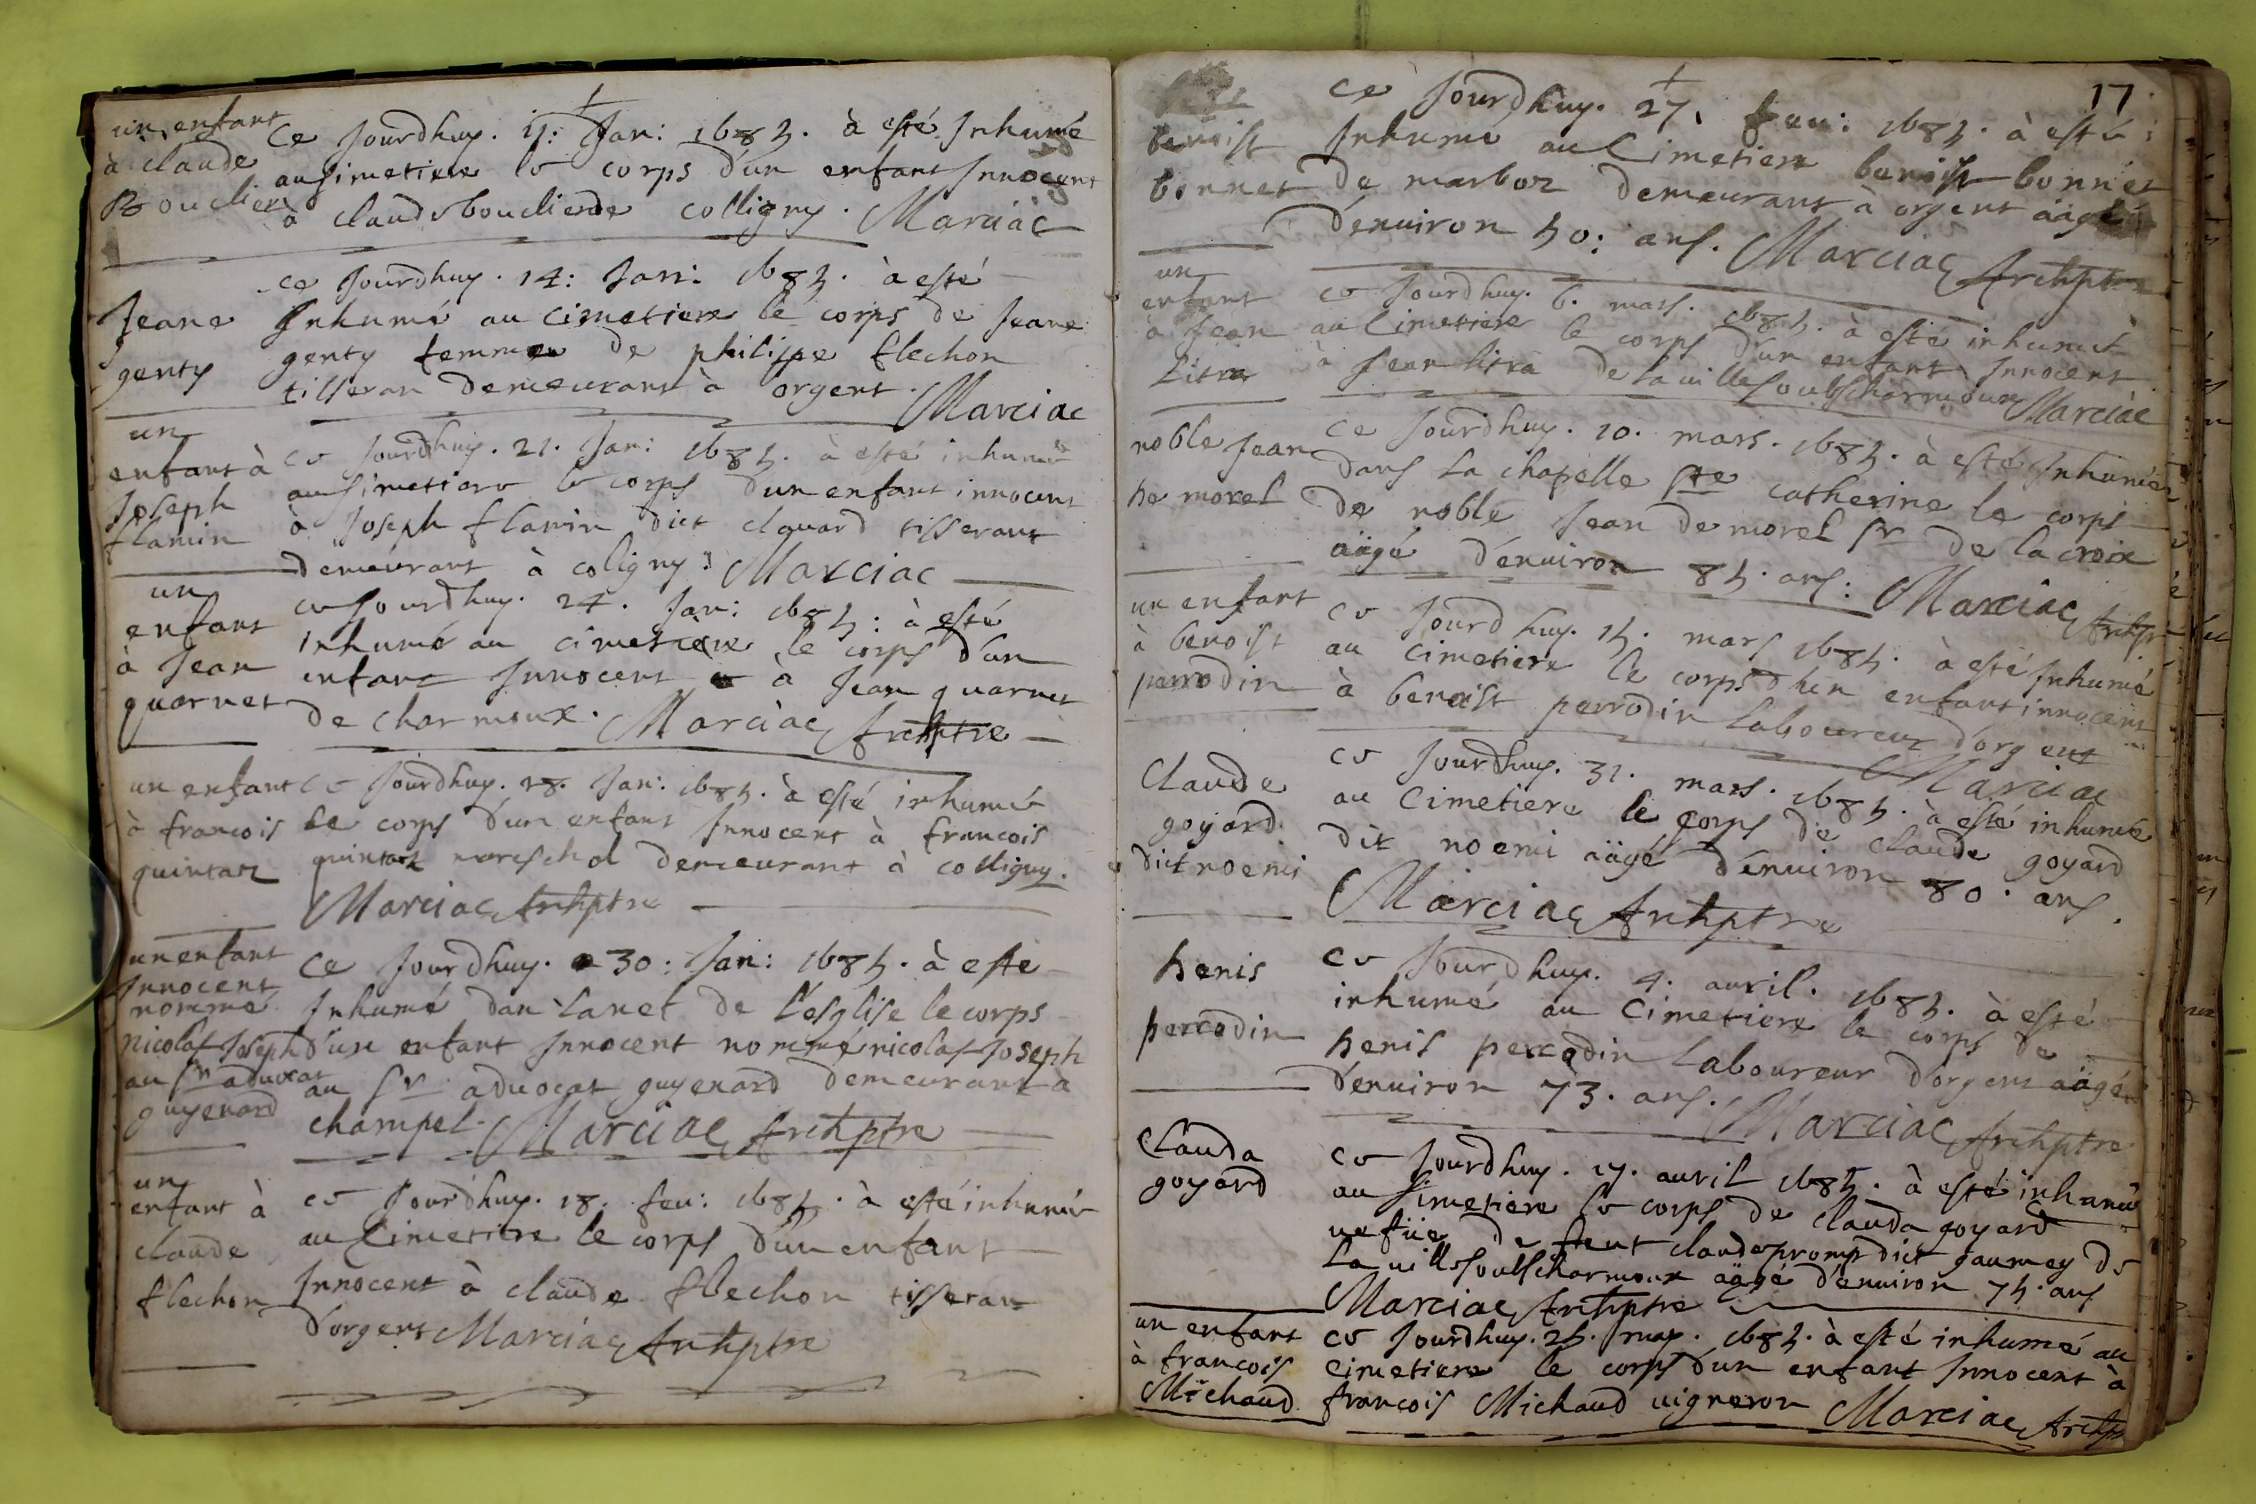 un enfant
à claude
Bouclier
ce Jourdhuy. 11: Jan: 1685. à esté Inhumé
au simetiere le corps d'un enfant Innocent
à claude bouclier de colligny. Marciac
Jeane
genty
ce Jourdhuy. 14: Jan: 1685. à esté
Inhumé au cimetiere le corps de Jeane
genty femme de philippe flechon
tisseran demeurant à orgent. Marciac
un
enfant à
Joseph
flamin
ce Jourdhuy. 21. Jan: 1685. à esté inhumé
au simetiere le corps d'un enfant innocent
à Joseph flamin dict clouard tisserant
demeurant à coligny: Marciac
un
enfant
à Jean
quarnet
ce Jourdhuy. 24. Jan: 1685: à esté
inhumé au cimetiere le corps d'un
enfant Innocent à Jean quarnet
de charmoux. Marciac Archptre
un enfant
à francois
quintar
ce Jourdhuy. 28. Jan: 1685. à esté inhumé
le corps d'un enfant Innocent à francois
quintar mareschal demeurant à colligny.
Marciac Archptre
un enfant
Innocent
nommé
nicolas Joseph
au sr advocat
guyenard
ce Jourdhuy. 30: Jan: 1685. à esté
Inhumé dan la nef de l'esglise le corps
d'un enfant Innocent nommé nicolas Joseph
au sr advocat guyenard demeurant à
champel. Marciac Archptre
un
enfant à
claude
flechon
ce Jourdhuy. 18. feu: 1685. à esté inhumé
au Cimetiere le corps d'un enfant
Innocent à claude flechon tisseran
d'orgent Marciac Archptre
17
benoist
bonnet
ce Jourdhuy. 27. feu: 1685. à esté
Inhumé au Cimetiere benoist bonnet
de marboz demeurant à orgent aägé
d'enuiron 50: ans. Marciac Archptre
un
enfant
à Jean
Litra
ce Jourdhuy. 6. mars. 1685. à esté inhumé
au Cimetiere le corps d'un enfant Innocent
à Jean litra de la uille soubscharmoux Marciac
noble Jean
de morel
ce Jourdhuy. 10. mars. 1685. à esté Inhumé
dans la chapelle ste catherine le corps
de noble Jean de morel sr de la croix
aägé d'enuiron 85. ans: Marciac Archp
un enfant
à benoist
perrodin
ce Jourdhuy. 15. mars 1685. à esté Inhumé
au Cimetiere le corps d'hun enfant innocent
à benoist perrodin laboureur d'orgent
Marciac
Claude
goyard
dict noemi
ce Jourdhuy. 31. mars. 1685. à esté inhumé
au Cimetiere le corps de claude goyard
dit noemi aägé d'enuiron 80. ans.
Marciac Archptre
henis
perrodin
ce Jourdhuy. 4. auril. 1685. à esté
inhumé au Cimetiere le corps de
henis perrodin laboureur d'orgent aägé
d'enuiron 73. ans. Marciac Archptre
Clauda
goyard
ce Jourdhuy. 17. auril 1685. à esté inhumé
au simetiere le corps de clauda goyard
uefue de feut claude promp dict gaumey de
la uille soubscharmoux aägé d'enuiron 75. ans
Marciac Archptre
un enfant
à francois
Michaud
ce Jourdhuy. 25. may. 1685. à esté inhumé au
Cimetiere le corps d'un enfant Innocent à
francois Michaud uigneron Marciac Archp